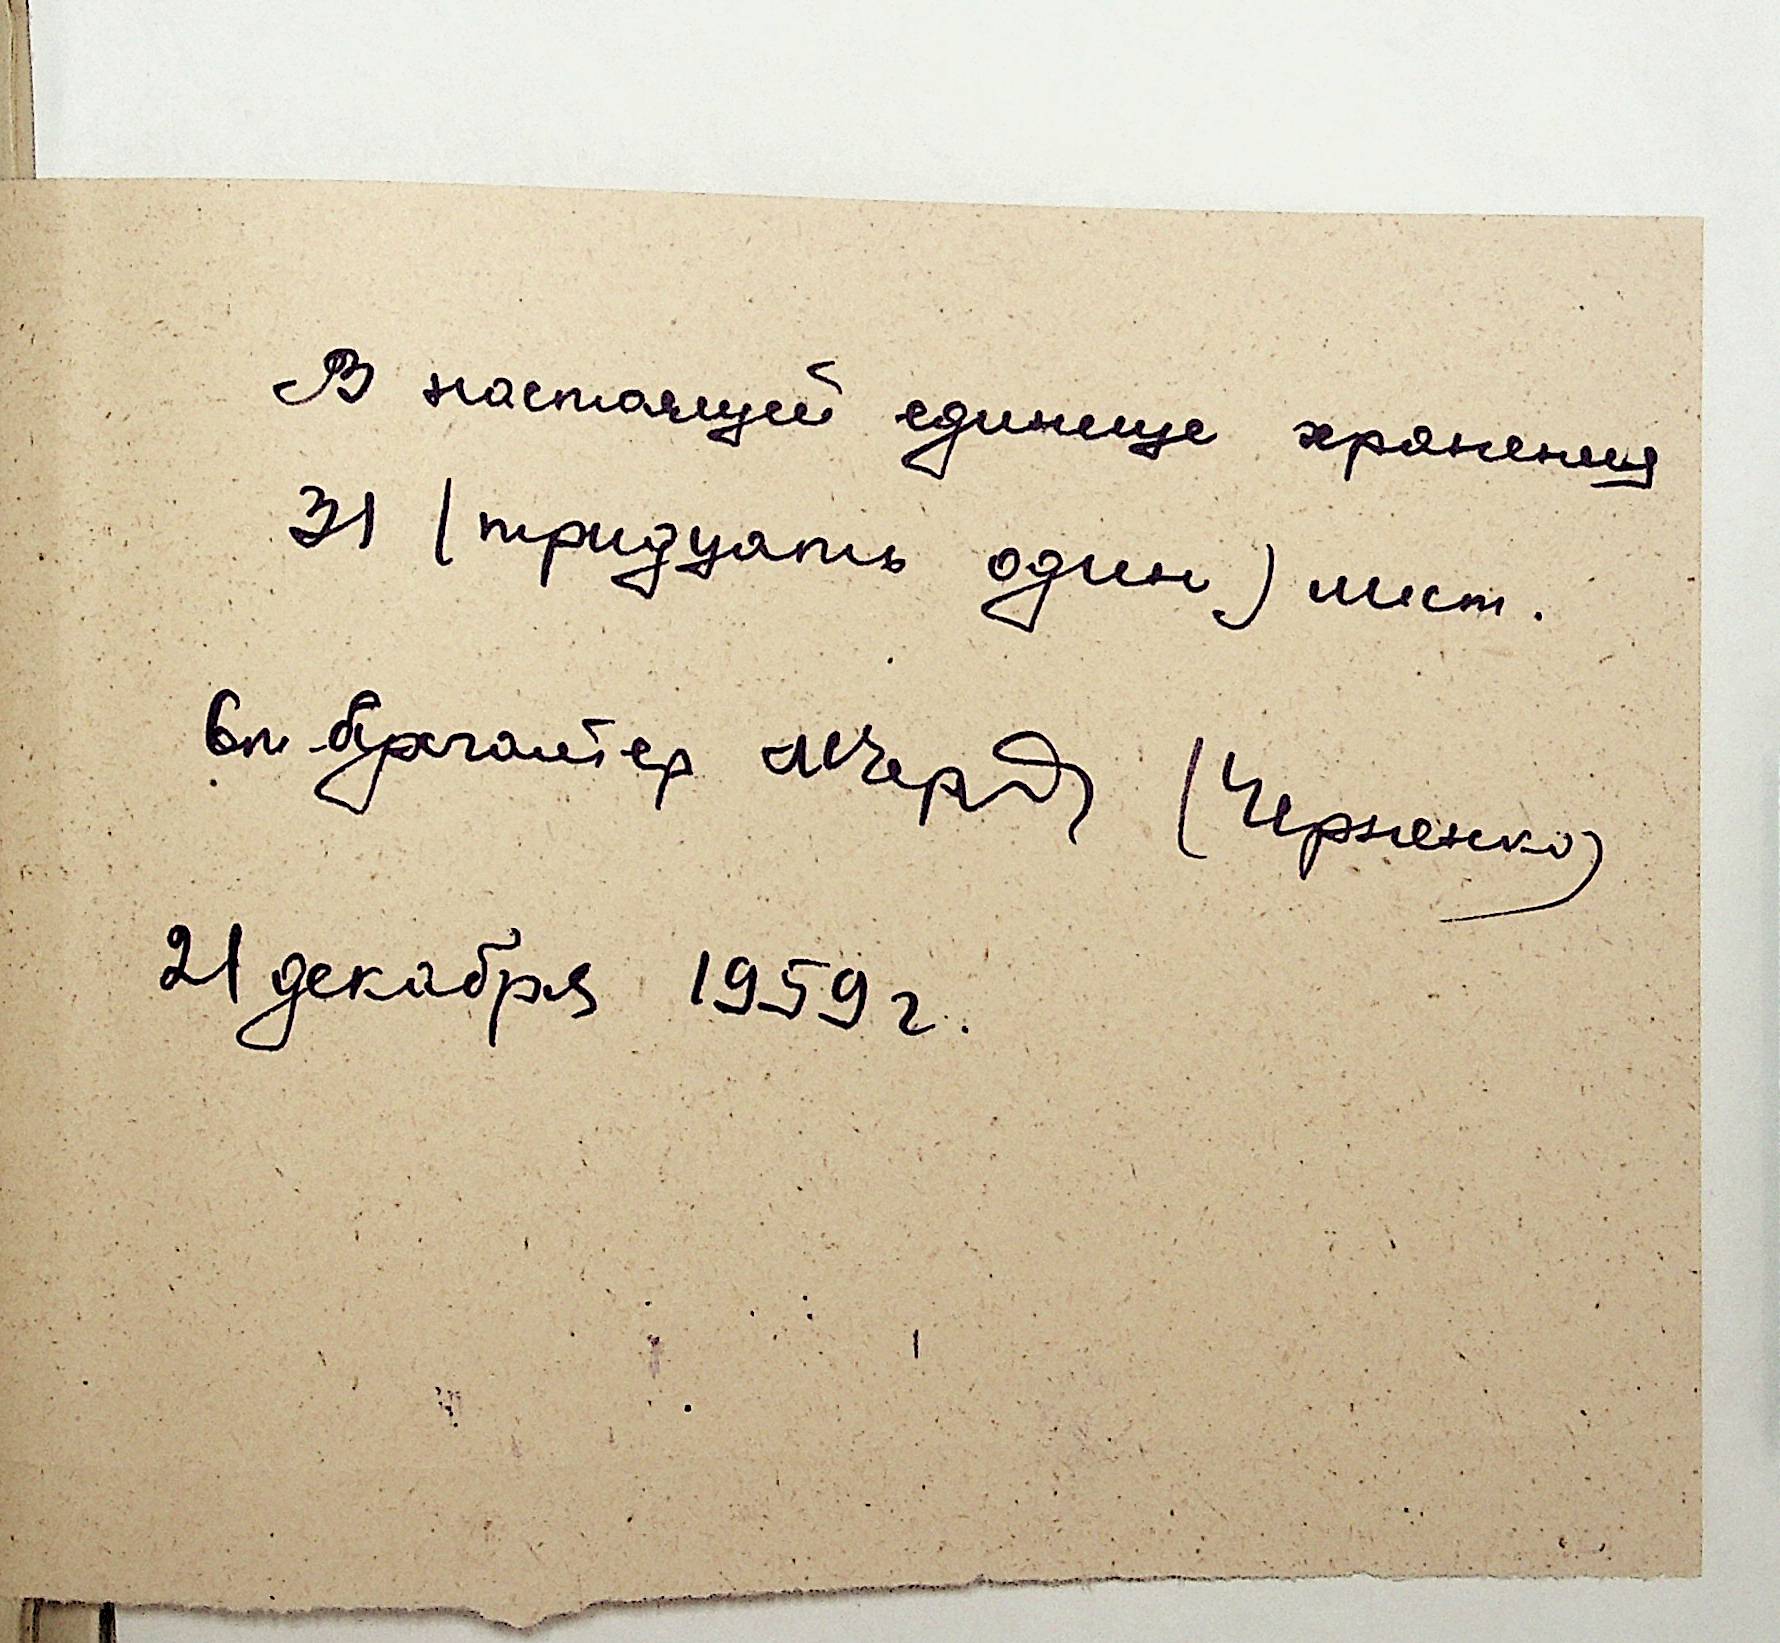 В настоящей единице хранения
31 (тридцать один) лист.
бухгалтер (Черненко)
21 декабря 1959 г.